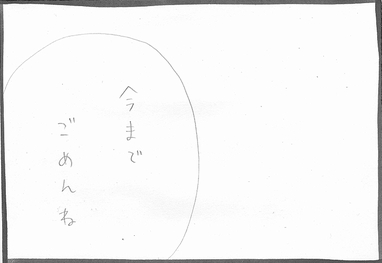 今まで
ごめんね